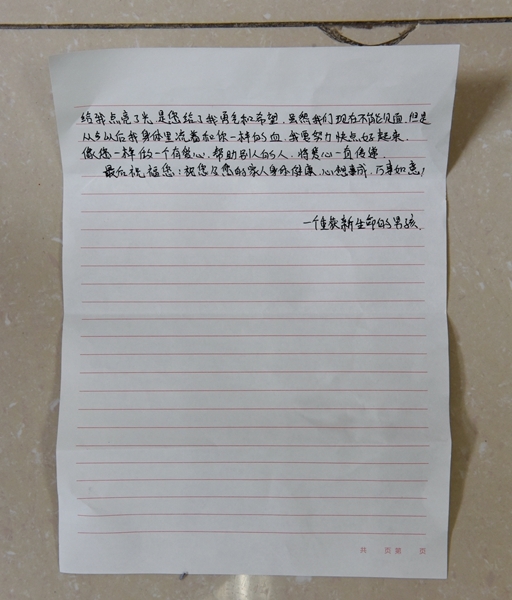 给我点亮了光,是您给了我勇气和希望,虽然我们现在不能见面,但是
从今以后我身体里流着和你一样的血,我要努力快点好起来,
像您一样做一个有爱心,帮助别人的人,将爱心一直传递.
最后祝福您:祝您及您的家人身体健康,心想事成,万事如意!
一个重获新生命的男孩.
共 页 第 页